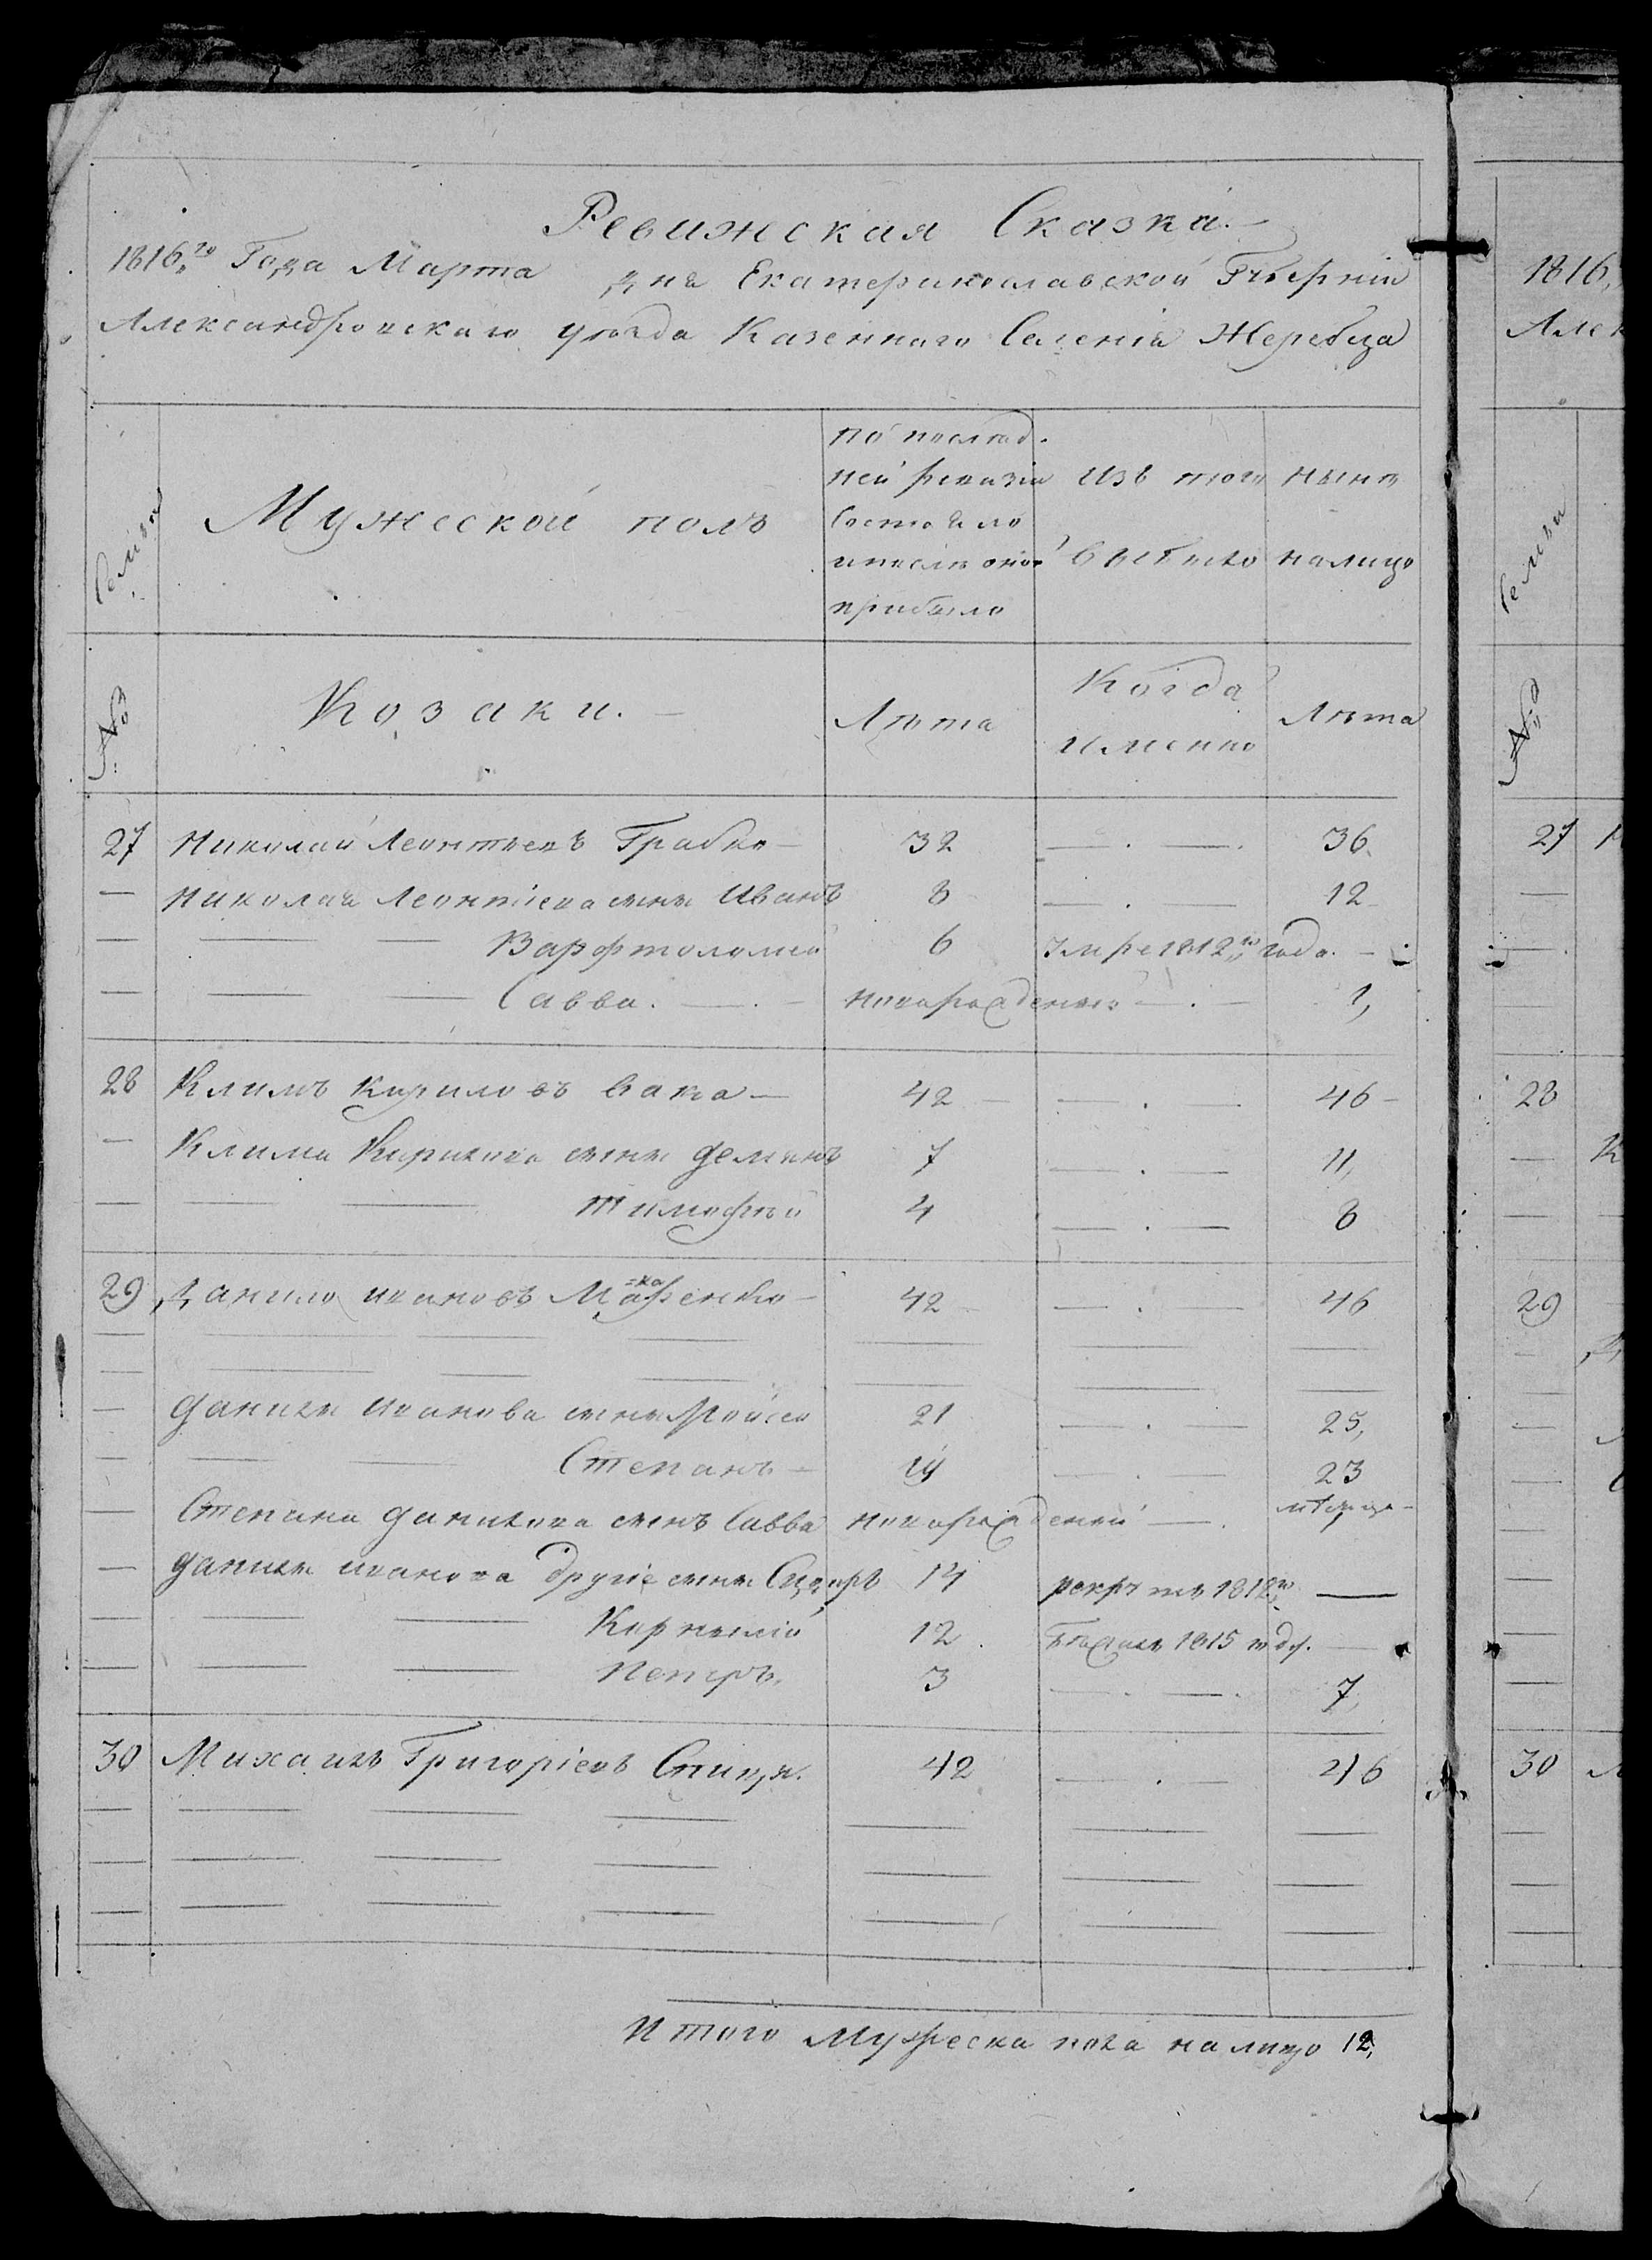 Ревижская Сказка.
1816го Года Марта дня Екатеринославской Губерніи
Александровскаго уѣзда Казеннаго Селенія Жеребца
Семьи
Мужеской полъ
по послѣд-
ней ревизіи
состояло
и послѣ оной
прибыло
изъ того
выбыло
нынѣ
налицо
№
Козаки.
Лѣта
Когда
именно
Лѣта
27 Николай Леонтьевъ Грабко 32 — . — 36
— Николая Леонтіева сынъ Иванъ 8 — . — 12
— — — Варфтоломей 6 умре 1812го года. —
— — — Савва. — новорожденный — . — 1,
28 Климъ Кириловъ Вака — 42 — . — 46
— Клима Кирилова сыны Демянъ 7 — . — 11,
— — — Тимофѣй 4 — . — 8
29 Данило Ивановъ Ма=каренко 42 — . — 46
— Данилы Иванова сыны Мойсей 21 — . — 25,
— — — Степанъ — 19 — . — 23
— Степана Данилова сынъ Савва новорожденый — . мѣсяца
— Данилы Иванова другіе сыны Сидоръ 14 рекрутъ 1812го —
— — — Корнылій 12 бѣжалъ 1815 году. —
— — — Петръ. 3 — . — 7,
30 Михаилъ Григоріевъ 42 — . — 46
Итого Мужеска пола налицо 12,
1816,
Алек
Семьи
№
27
28
К
29
30